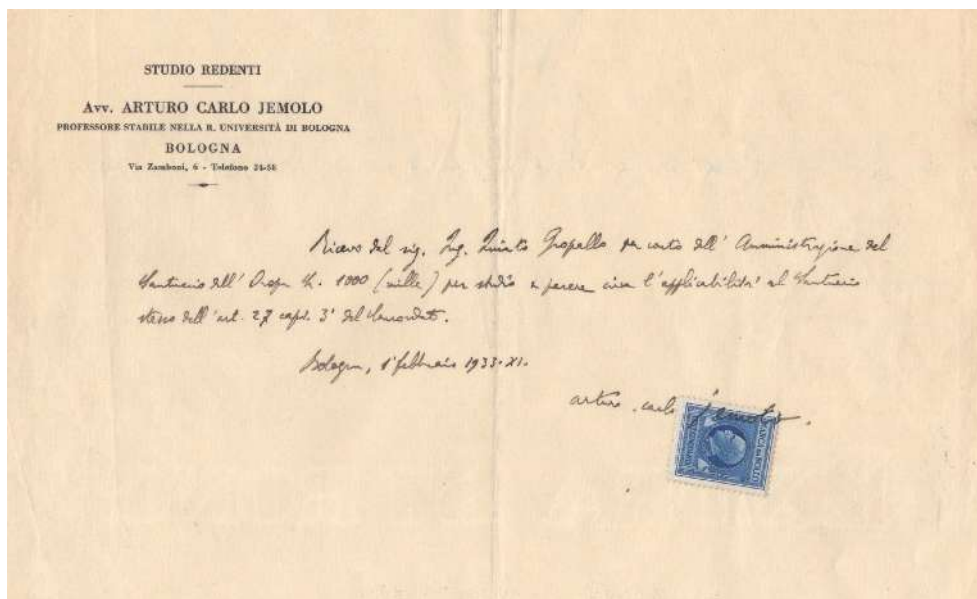 STUDIO REDENTI
Avv. ARTURO CARLO JEMOLO
PROFESSORE STABILE NELLA R. UNIVERSITÀ DI BOLOGNA
BOLOGNA
Via Zamboni, 6 - Telefono 24-58
Ricevo dal sig. Ing. Gropallo per conto dell' Amministrazione del
Santuario dell' Oropa L. 1000 (mille) per studio e parere circa l'applicabilità al Santuario
stesso dell' art. 27 capv. 3° del Concordato.
Bologna, 1° febbraio 1933-XI.
arturo carlo jemolo.